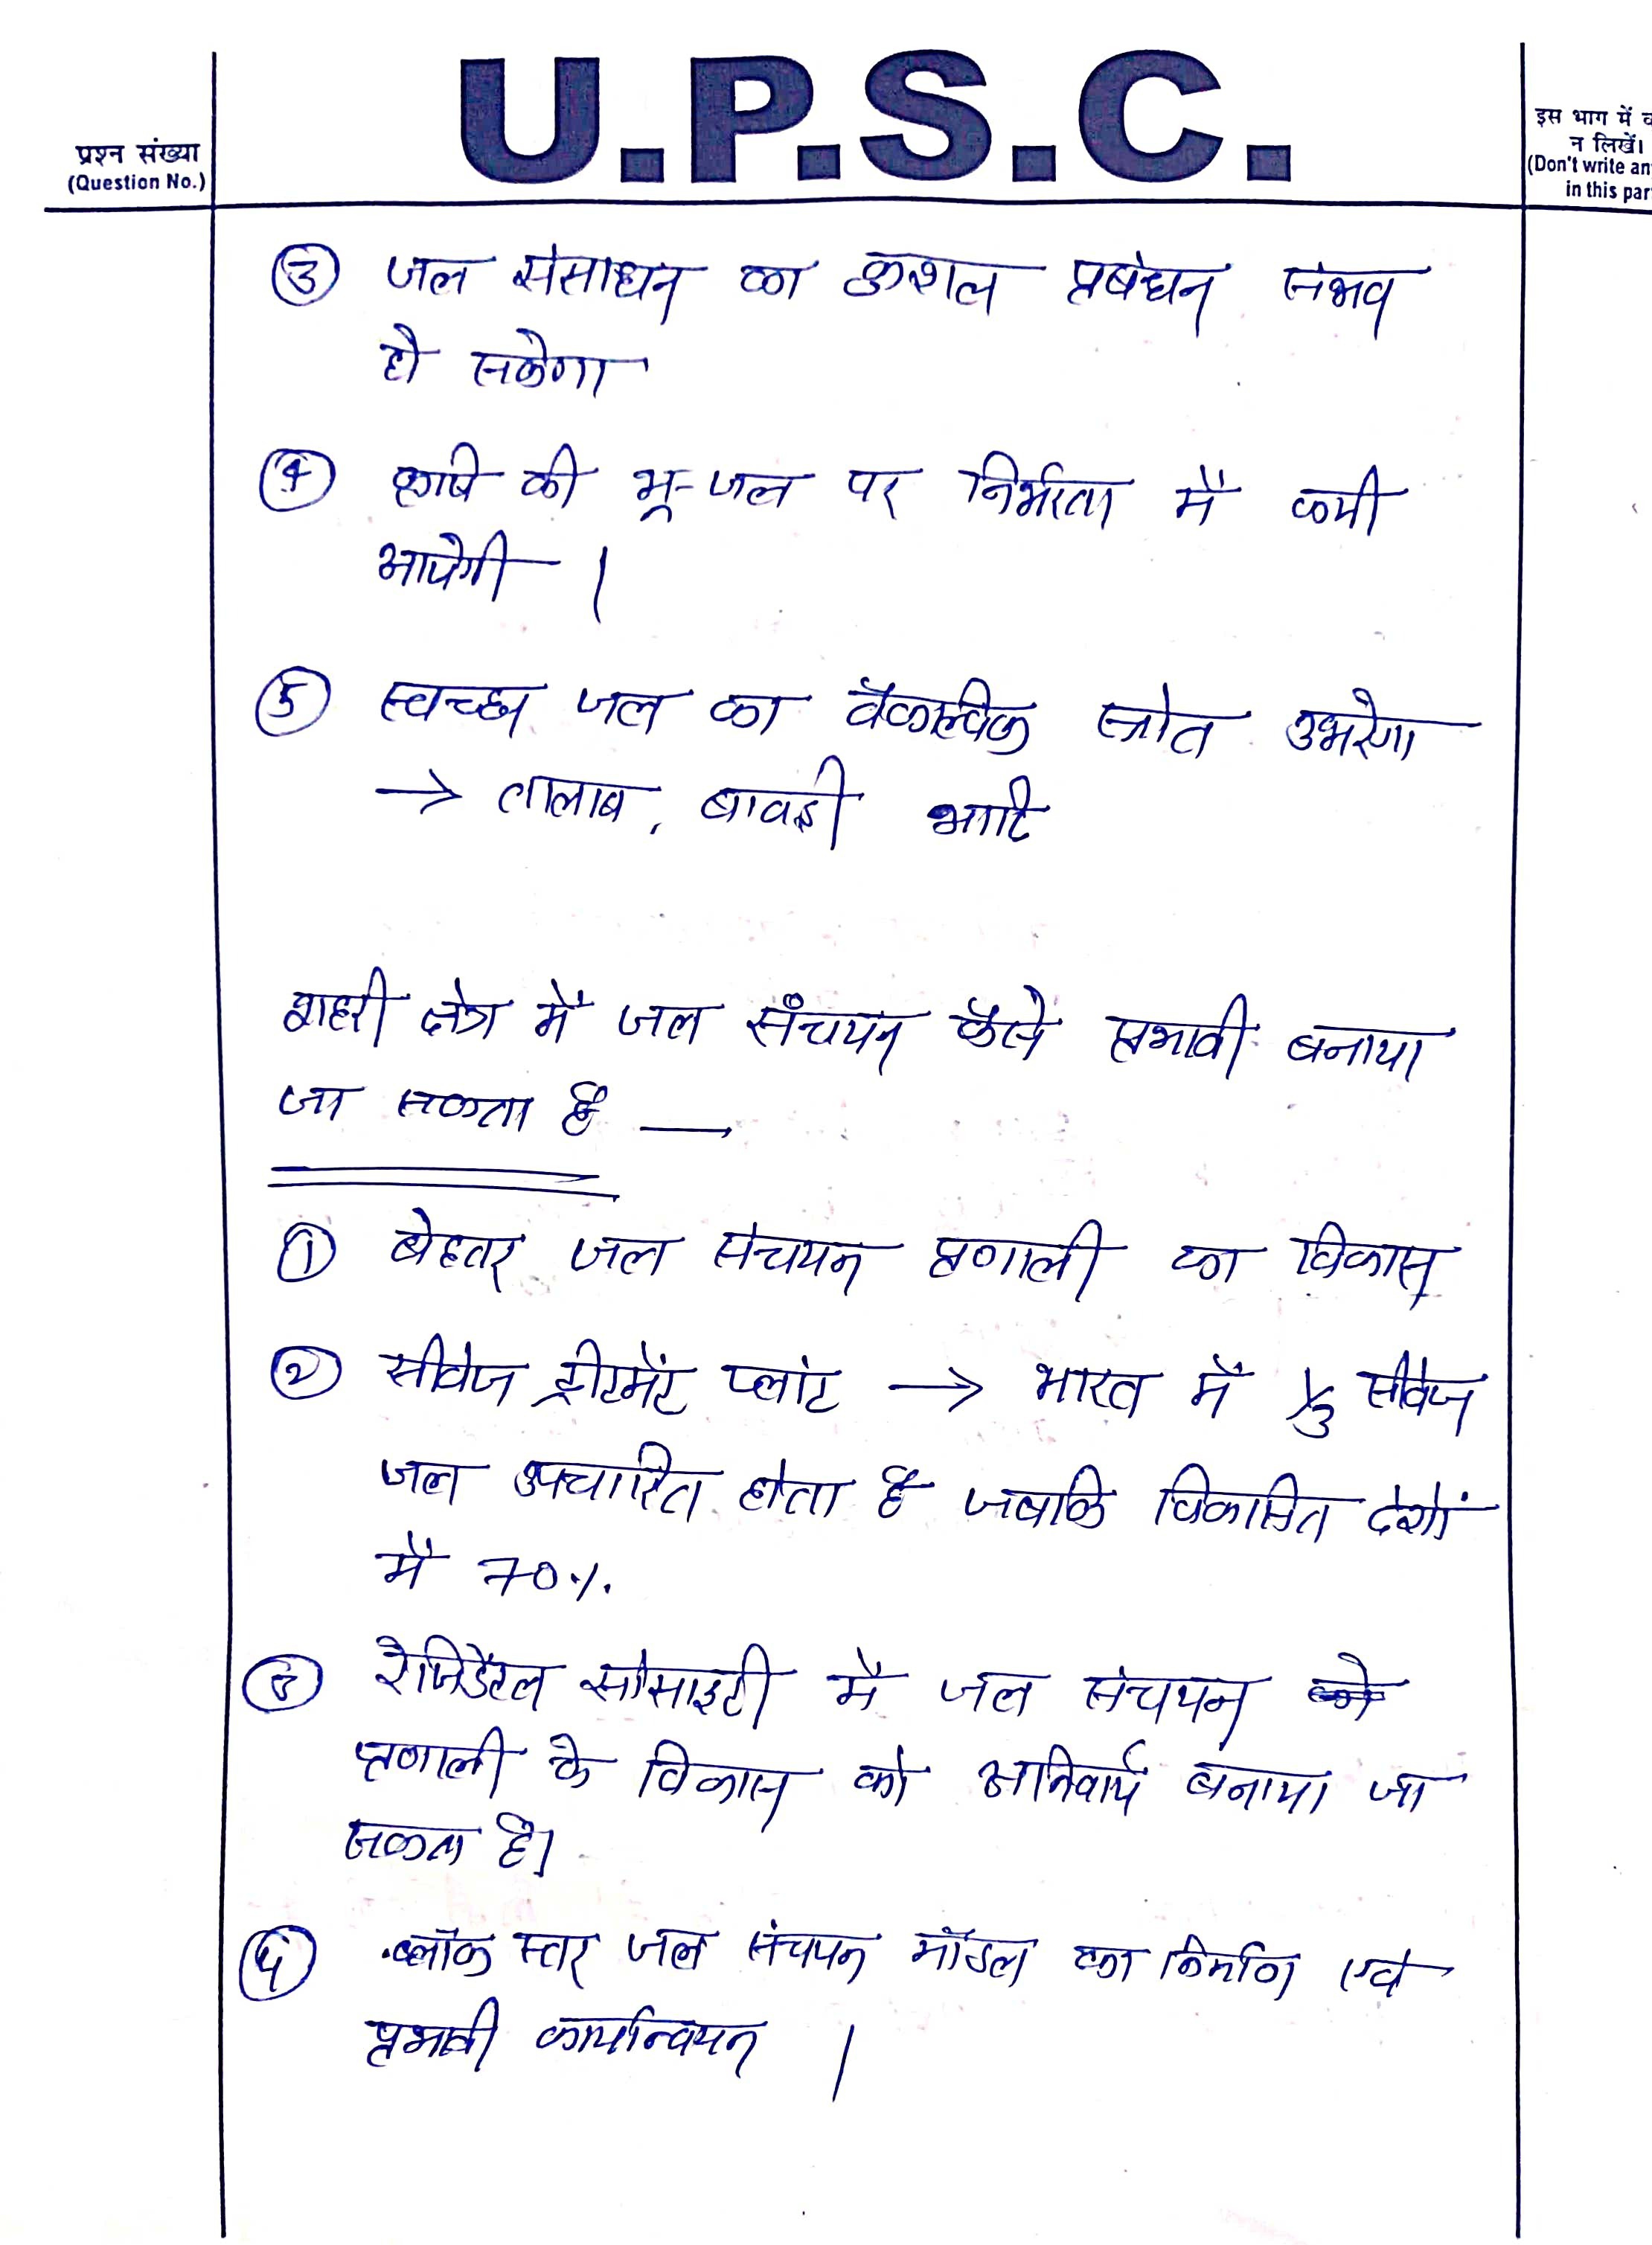 U.P.S.C.
प्रश्न संख्या
(Question No.)
इस भाग में
न लिखें।
(Don't write an
in this par
③ जल संसाधन का कुशल प्रबंधन संभव
हो सकेगा
④ कृषि की भू-जल पर निर्भरता में कमी
आयेगी।
⑤ स्वच्छ जल का वैकल्पिक स्त्रोत उभरेगा
→ तालाब, बावड़ी आदि
शहरी क्षेत्र में जल संचयन कैसे प्रभावी बनाया
जा सकता है —
① बेहतर जल संचयन प्रणाली का विकास
② सीवेज ट्रीटमेंट प्लांट → भारत में 1/3 सीवेज
जल उपचारित होता है जबकि विकसित देशों
में 70%
③ रेजिडेंटल सोसाइटी में जल संचयन
प्रणाली के विकास को अनिवार्य बनाया जा
सकता है।
④ ब्लॉक स्तर जल संचयन मॉडल का निर्माण एवं
प्रभावी कार्यान्वयन।